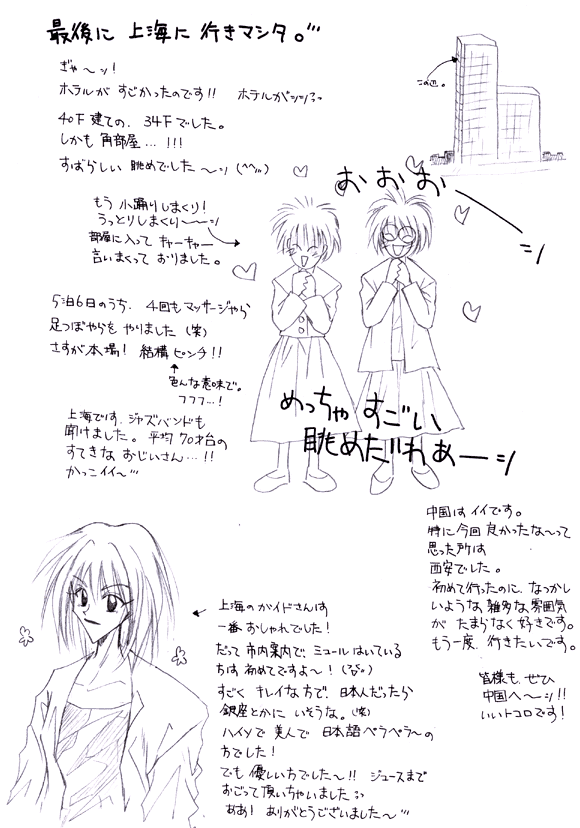 最後に 上海に 行きマシタ。
ぎゃ〜ッ!
ホテルが すごかったのです!! ホテルがッッ
この辺。
40F 建ての、34Fでした。
しかも 角部屋…!!!
すばらしい 眺めでした 〜ッ (^^)
おおおーッ
もう 小踊りしまくり!
うっとりしまくり〜〜ッ
部屋に入って キャーキャー
言いまくって おりました。
5泊6日のうち、4回もマッサージやら
足つぼやらを やりました (笑)
さすが本場! 結構ピンチ!!
色んな意味で。
フフフ…!
めっちゃ すごい
眺めだわぁーッ
上海では、ジャズバンドも
聞けました。平均70才台の
すてきな おじいさん…!!
かっこイイ〜
中国は イイです。
特に今回 良かったな〜って
思った所は
西安でした。
初めて行ったのに、なつかし
いような、雑多な雰囲気
が たまらなく 好きです。
もう一度、行きたいです。
皆様も、ぜひ
中国へ〜ッ!!
いいトコロです!
上海のガイドさんは
一番 おしゃれでした!
だって 市内案内で ミュール はいている
ちは 初めてですよ〜!
すごく キレイな方で、日本人だったら
銀座とかに いそうな。(笑)
ハイソで 美人で 日本語ペラペラ〜の
方でした!
でも 優しい方でした〜!! ジュースまで
おごって 頂いちゃいました
ああ! ありがとうございました〜